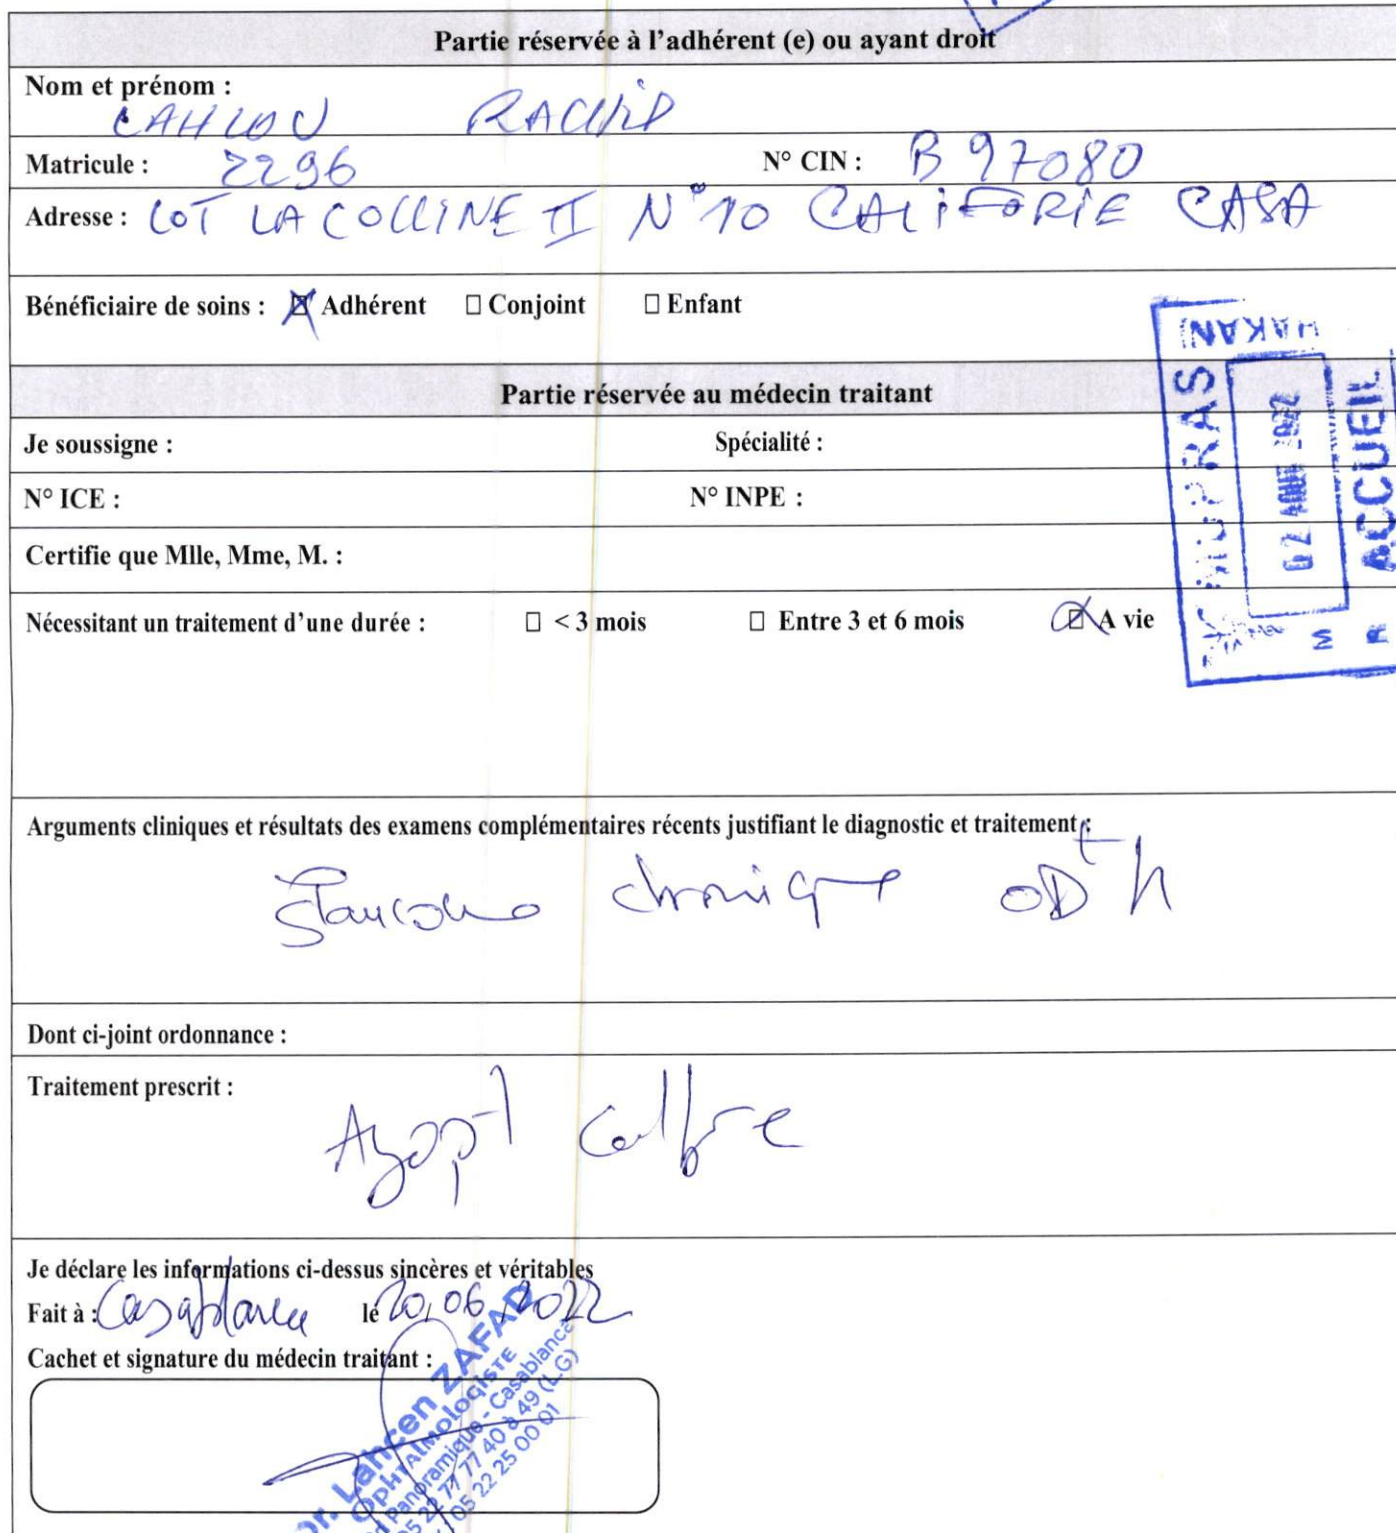 Partie réservée à l'adhérent (e) ou ayant droit
Nom et prénom :
LAHLOU RACHID
Matricule : 2296 N° CIN : B 97080
Adresse : LOT LA COLLINE II N°10 CALIFORIE CASA
Bénéficiaire de soins : ☒ Adhérent ☐ Conjoint ☐ Enfant
Partie réservée au médecin traitant
Je soussigne : Spécialité :
N° ICE : N° INPE :
Certifie que Mlle, Mme, M. :
Nécessitant un traitement d'une durée : ☐ < 3 mois ☐ Entre 3 et 6 mois ☒ A vie
MUPRAS
02 AOUT 2022
ACCUEIL
Arguments cliniques et résultats des examens complémentaires récents justifiant le diagnostic et traitement :
Glaucome chronique
Dont ci-joint ordonnance :
Traitement prescrit :
Azopt
Je déclare les informations ci-dessus sincères et véritables
Fait à : Casablanca le 20,06,2022
Cachet et signature du médecin traitant :
Dr. Lahcen ZAFAD
OPHTALMOLOGISTE
Panoramique - Casablanca
05 22 77 77 40 à 49 (L.G)
05 22 25 00 01